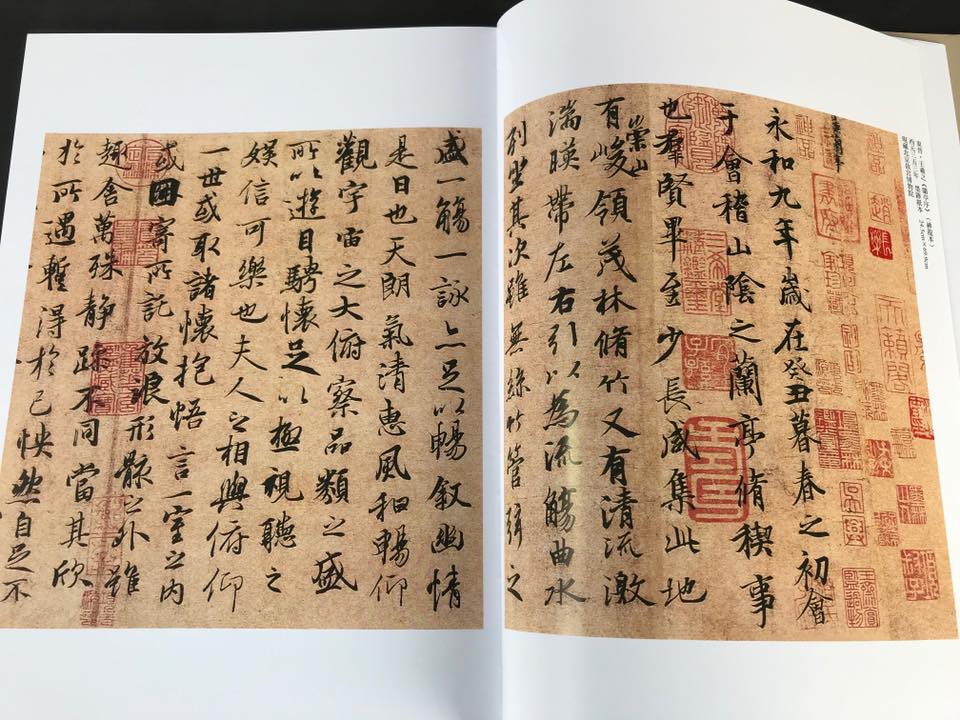 東晉·王羲之《蘭亭序》（神龍本）
西元三五三年 墨跡紙本
現藏北京故宮博物院
永和九年歲在癸丑暮春之初會
于會稽山陰之蘭亭脩禊事
也羣賢畢至少長咸集此地
有崇山峻領茂林脩竹又有清流激
湍暎帶左右引以為流觴曲水
列坐其次雖無絲竹管弦之
盛一觴一詠亦足以暢敘幽情
是日也天朗氣清惠風和暢仰
觀宇宙之大俯察品類之盛
所以遊目騁懷足以極視聽之
娛信可樂也夫人之相與俯仰
一世或取諸懷抱悟言一室之內
或因寄所託放浪形骸之外雖
趣舍萬殊靜躁不同當其欣
於所遇暫得於己怏然自足不